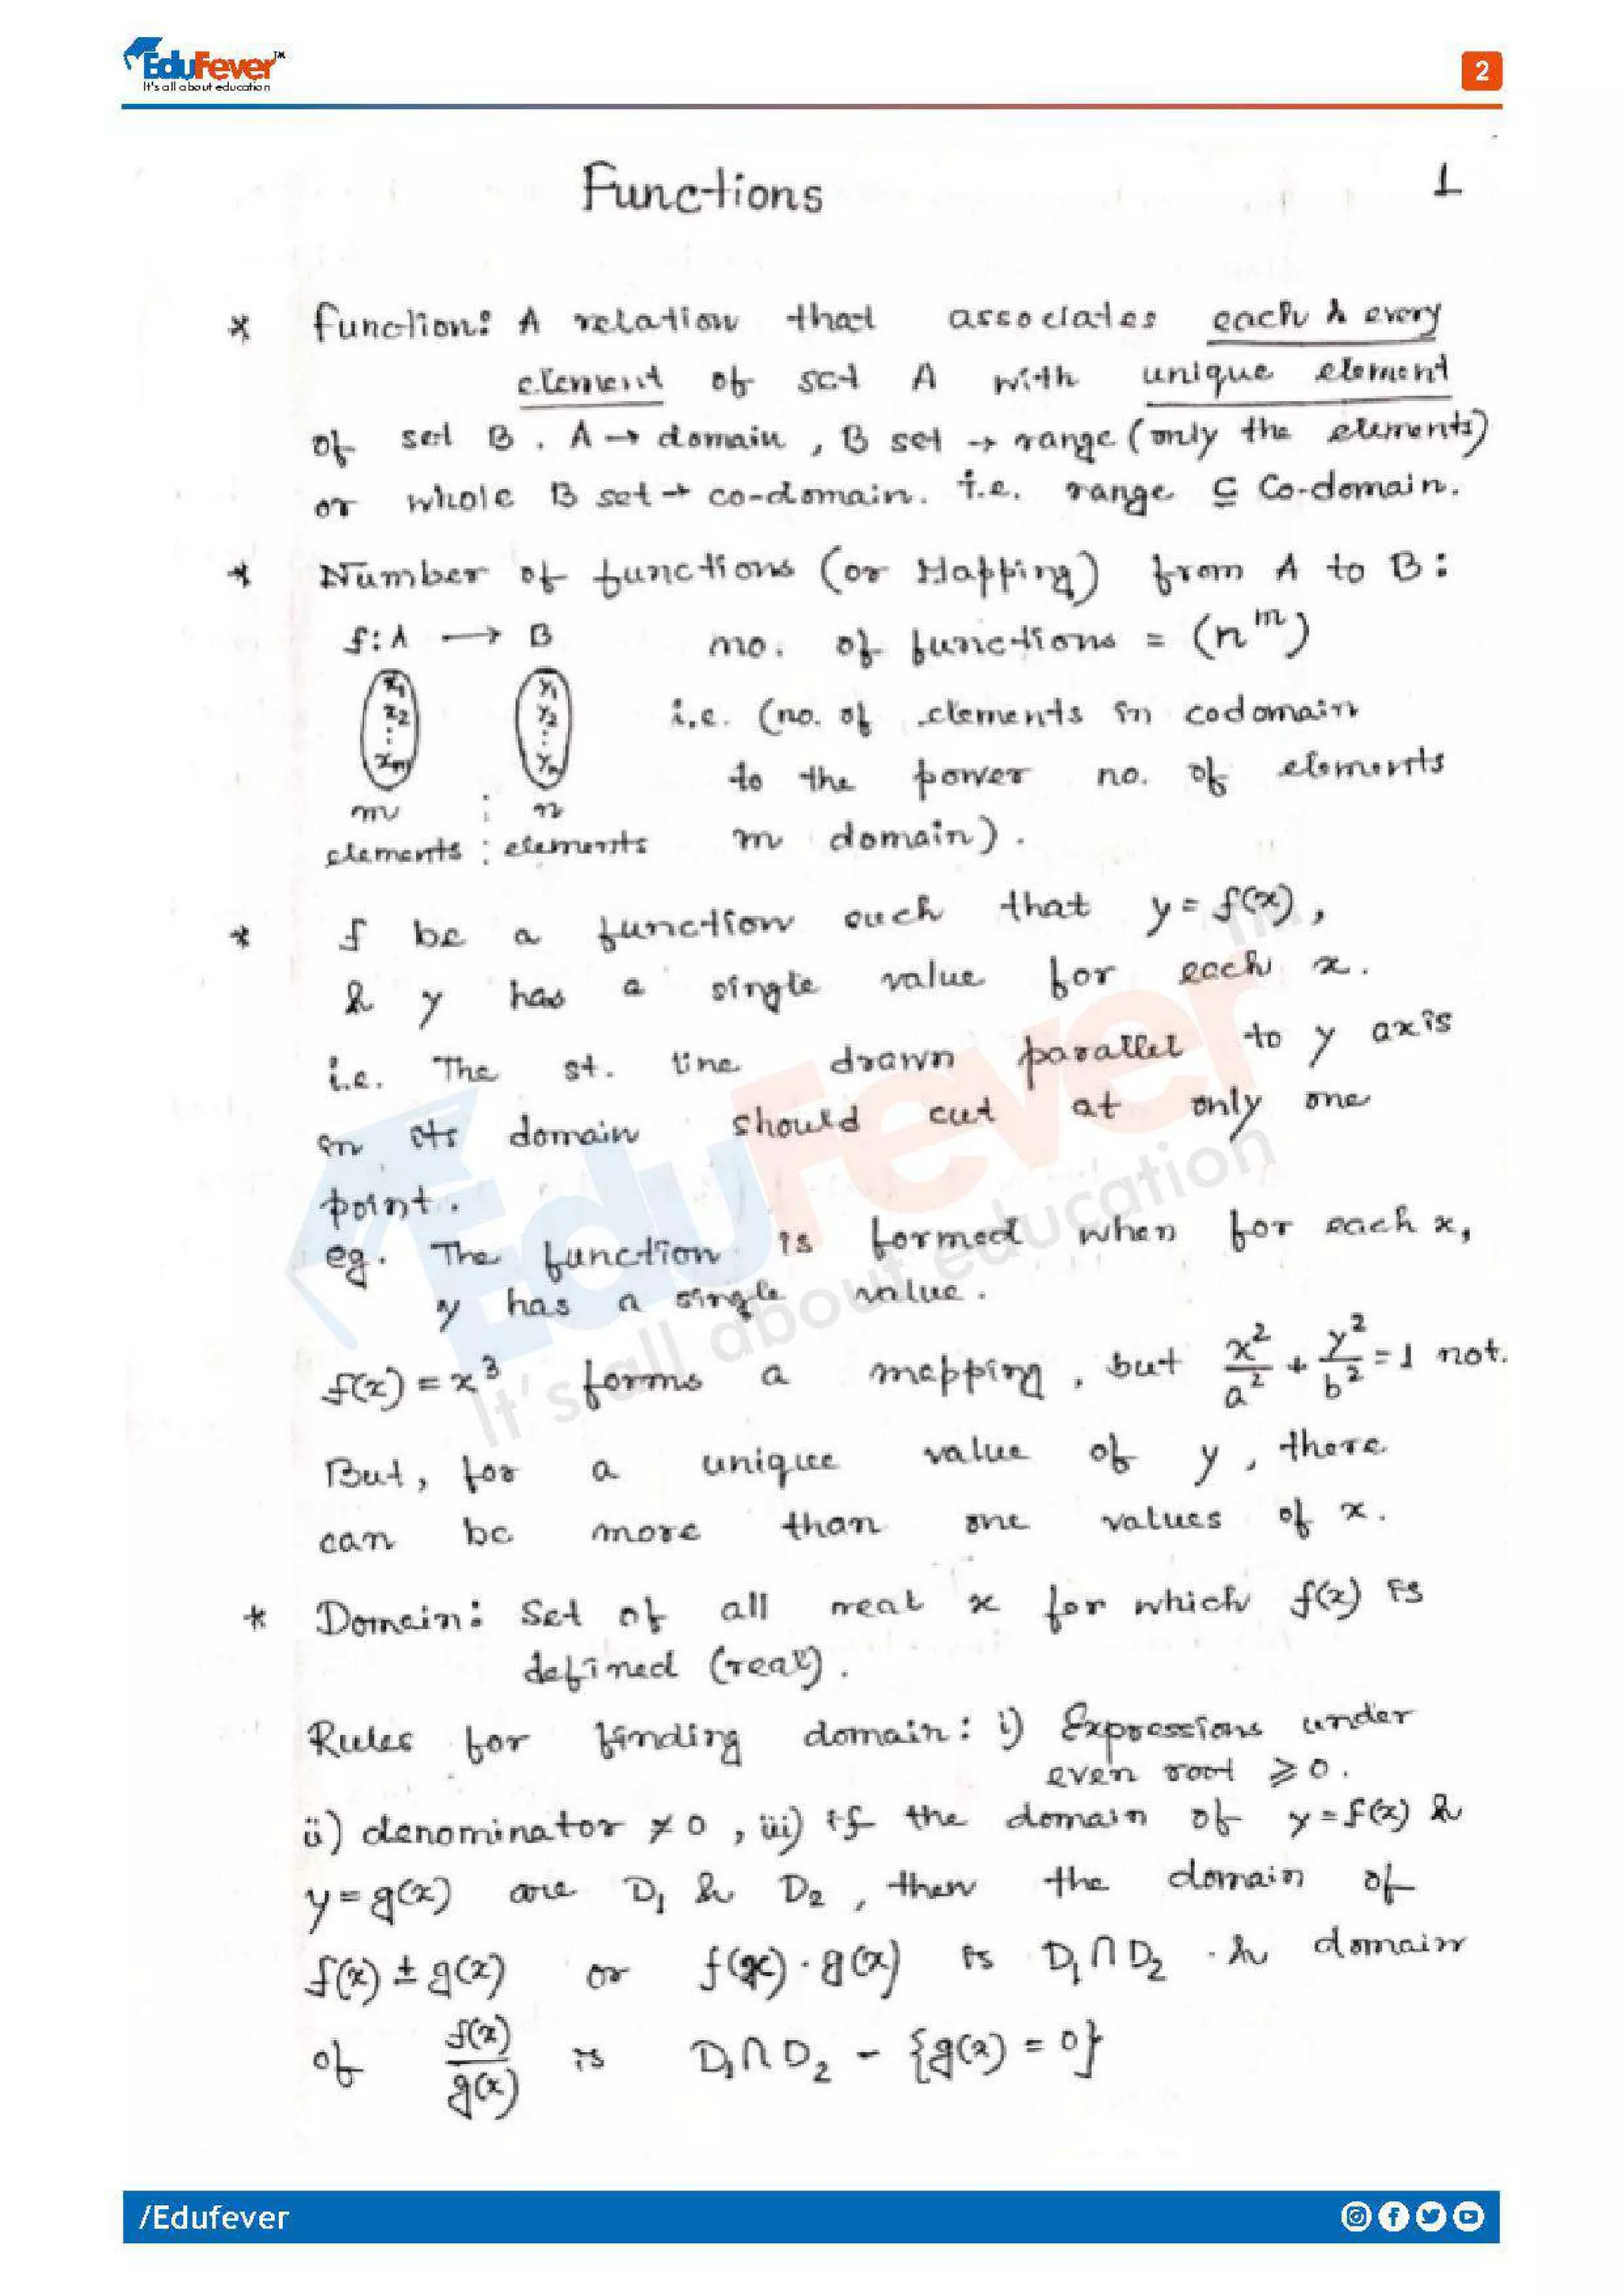 EduFever™
It's all about education
2
Functions
1
* Function: A relation that associates each & every
element of set A with unique element
of set B . A → domain , B set → range (only the elements)
or whole B set → co-domain. i.e. range ⊆ Co-domain.
* Number of functions (or Mapping) from A to B :
f: A ⟶ B no. of functions = (n^m)
x1 y1
x2 y2 i.e. (no. of elements in codomain
⋮ ⋮
xm yn to the power no. of elements
m : n
elements : elements in domain) .
* f be a function such that y = f(x) ,
& y has a single value for each x .
i.e. The st. line drawn parallel to y axis
in its domain should cut at only one
point .
eg. The function is formed when for each x,
y has a single value .
f(x) = x³ forms a mapping , but x²/a² + y²/b² = 1 not.
But, for a unique value of y , there
can be more than one values of x .
* Domain: Set of all real x for which f(x) is
defined (real) .
Rules for finding domain : i) Expressions under
even root ⩾ 0 .
ii) denominator ≠ 0 , iii) if the domain of y = f(x) &
y = g(x) are D1 & D2 , then the domain of
f(x) ± g(x) or f(x) · g(x) is D1 ∩ D2 . & domain
of f(x)/g(x) is D1 ∩ D2 - {g(x) = 0}
EduFever
It's all about education
TM
/Edufever